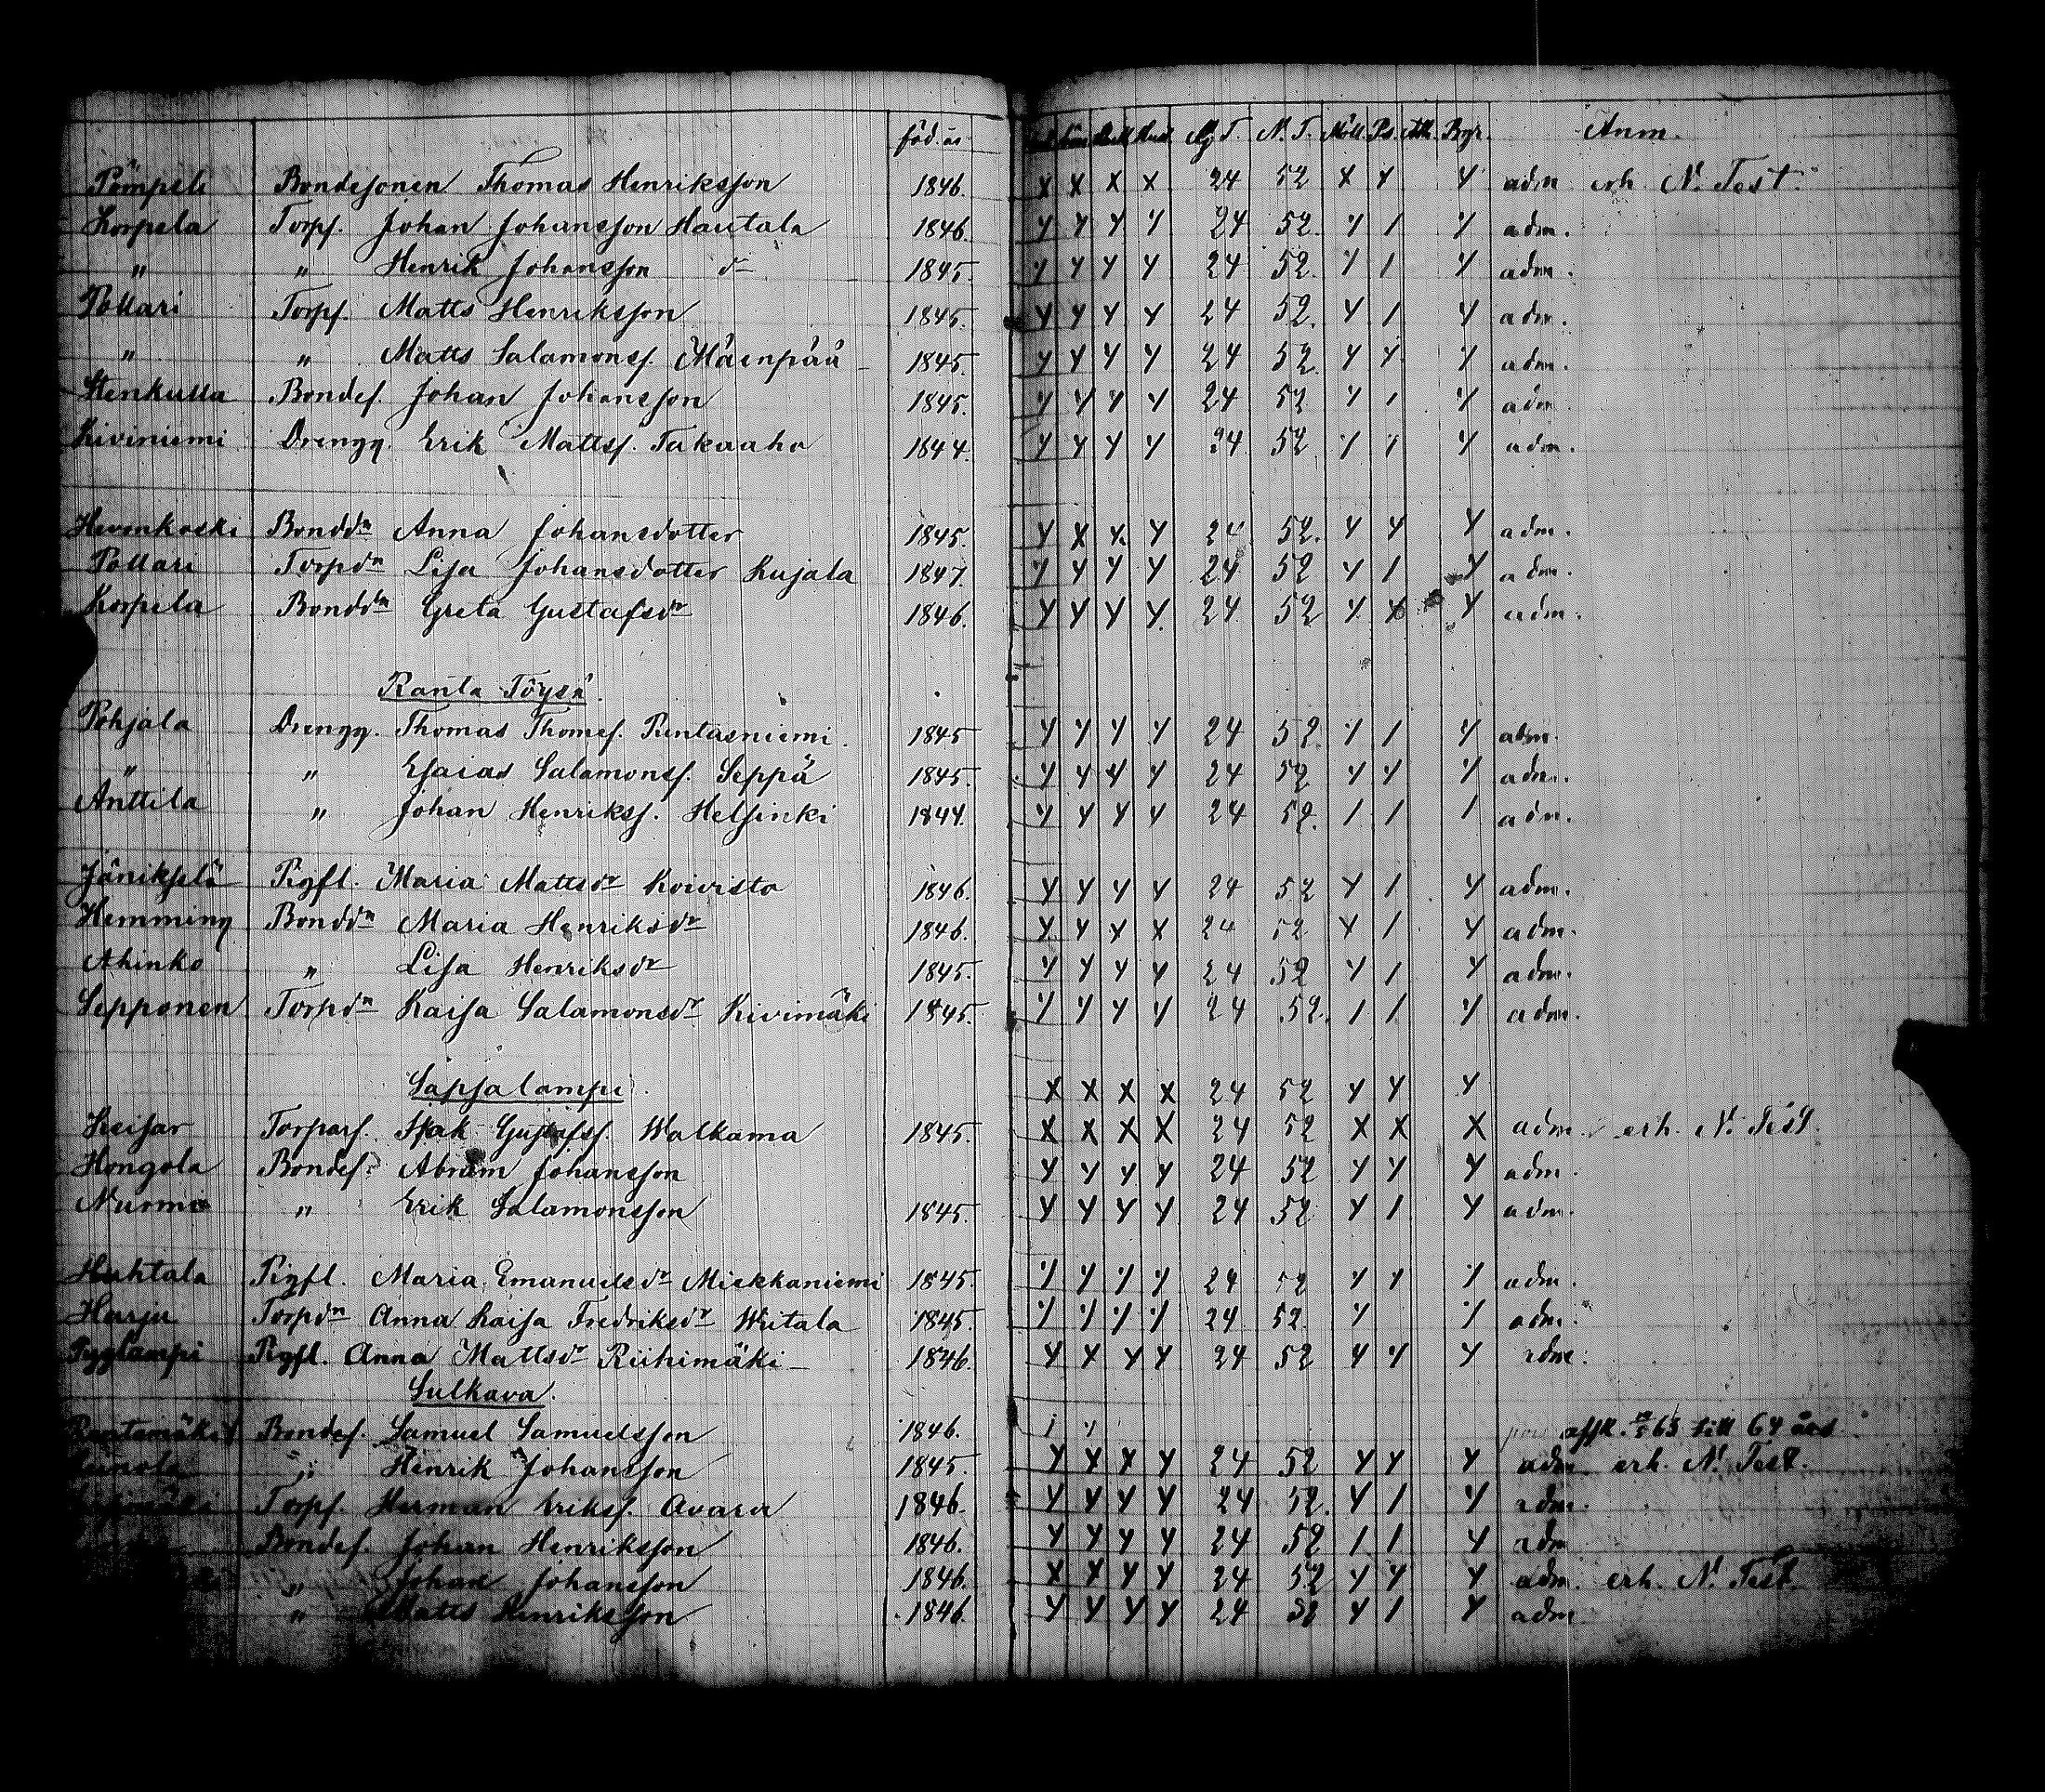 föd. år M. T. N. T. Möll. Ps. Ath. Byr. Anm.
Pömpeli Bondesonen Thomas Henriksson 1846. x x x x 24 52 x y y adm erh. N. Test.
Korpela Torps. Johan Johansson Hautala 1846. y y y y 24 52. y 1 y adm.
" " Henrik Johansson d:o 1845. y y y y 24 52. y 1 y adm.
Pollari Torps. Matts Henriksson 1845. y y y y 24 52. y 1 y adm.
" " Matts Salamonss. Mäenpää 1845. y y y y 24 52. y y y adm.
Stenkulla Bondes. Johan Johansson 1845. y y y y 24 52 y 1 y adm
Kiviniemi Drengg. Erik Mattss. Takaaho 1844. y y y y 24 52 y y y adm.
Hevonkoski Bondd:n Anna Johansdotter 1845. y x x y 24 52. y y y adm.
Pollari Torpd:n Lisa Johansdotter Kujala 1847. y y y y 24 52 y 1 y adm.
Korpela Bondd:n Greta Gustafsd:r 1846. y y y y 24 52 y x y adm.
Ranta Töysä.
Pohjala Drengg. Thomas Thomss. Rentasniemi. 1845 y y y y 24 52. y 1 y adm.
" " Esaias Salamonss. Seppä 1845. y y y y 24 52 y y y adm.
Anttila " Johan Henrikss. Helsinki 1844. y y y y 24 52. 1 1 1 adm.
Jänikselä Pigfl. Maria Mattsd:r Koivisto 1846. y y y y 24 52 y 1 y adm.
Hemming Bondd:n Maria Henriksd:r 1846. y y x x 24 52 x 1 y adm.
Ahinko " Lisa Henriksd:r 1845. y y y y 24 52 y 1 y adm.
Sepponen Torpd:n Kaisa Salamonsd:r Kivimäki 1845. y y y y 24 52. 1 1 y adm.
Sapsalampi. x x x x 24 52 y y y
Keisar Torpars. Isak Gustafss. Walkama 1845. x x x x 24 52 x x x adm. erh. N. Test.
Hongola Bondes. Abram Johansson y y y y 24 52 y y y adm.
Nurmi " Erik Salamonsson 1845. y y y y 24 52 y 1 y adm.
Huhtala Pigfl. Maria Emanuelsd:r Miekkaniemi 1845. y y y y 24 52 y y y adm.
Harju Torpd:n Anna Kaisa Fredriksd:r Witala 1845. y y y y 24 52. y y adm.
Pyylampi Pigfl. Anna Mattsd:r Riihimäki 1846. y x y y 24 52 y y y adm.
Sulkava.
Rantamäki Bondes. Samuel Samuelsson 1846. 1 y 63 till 64 års
" Henrik Johansson 1845. y x x y 24 52 y y y adm. erh. N. Test.
Torps. Herman Erikss. Avara 1846. y y y y 24 52. y 1 y adm.
Bondes. Johan Henriksson 1846. y y y y 24 52 1 1 y adm
" Johan Johansson 1846. x x y y 24 52 y y y adm. erh. N. Test.
" Matts Henriksson 1846. y y y y 24 52 y 1 y adm